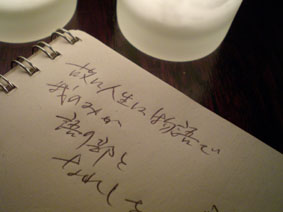 故に人生は物語で
我のみが
語り部と
なれしを